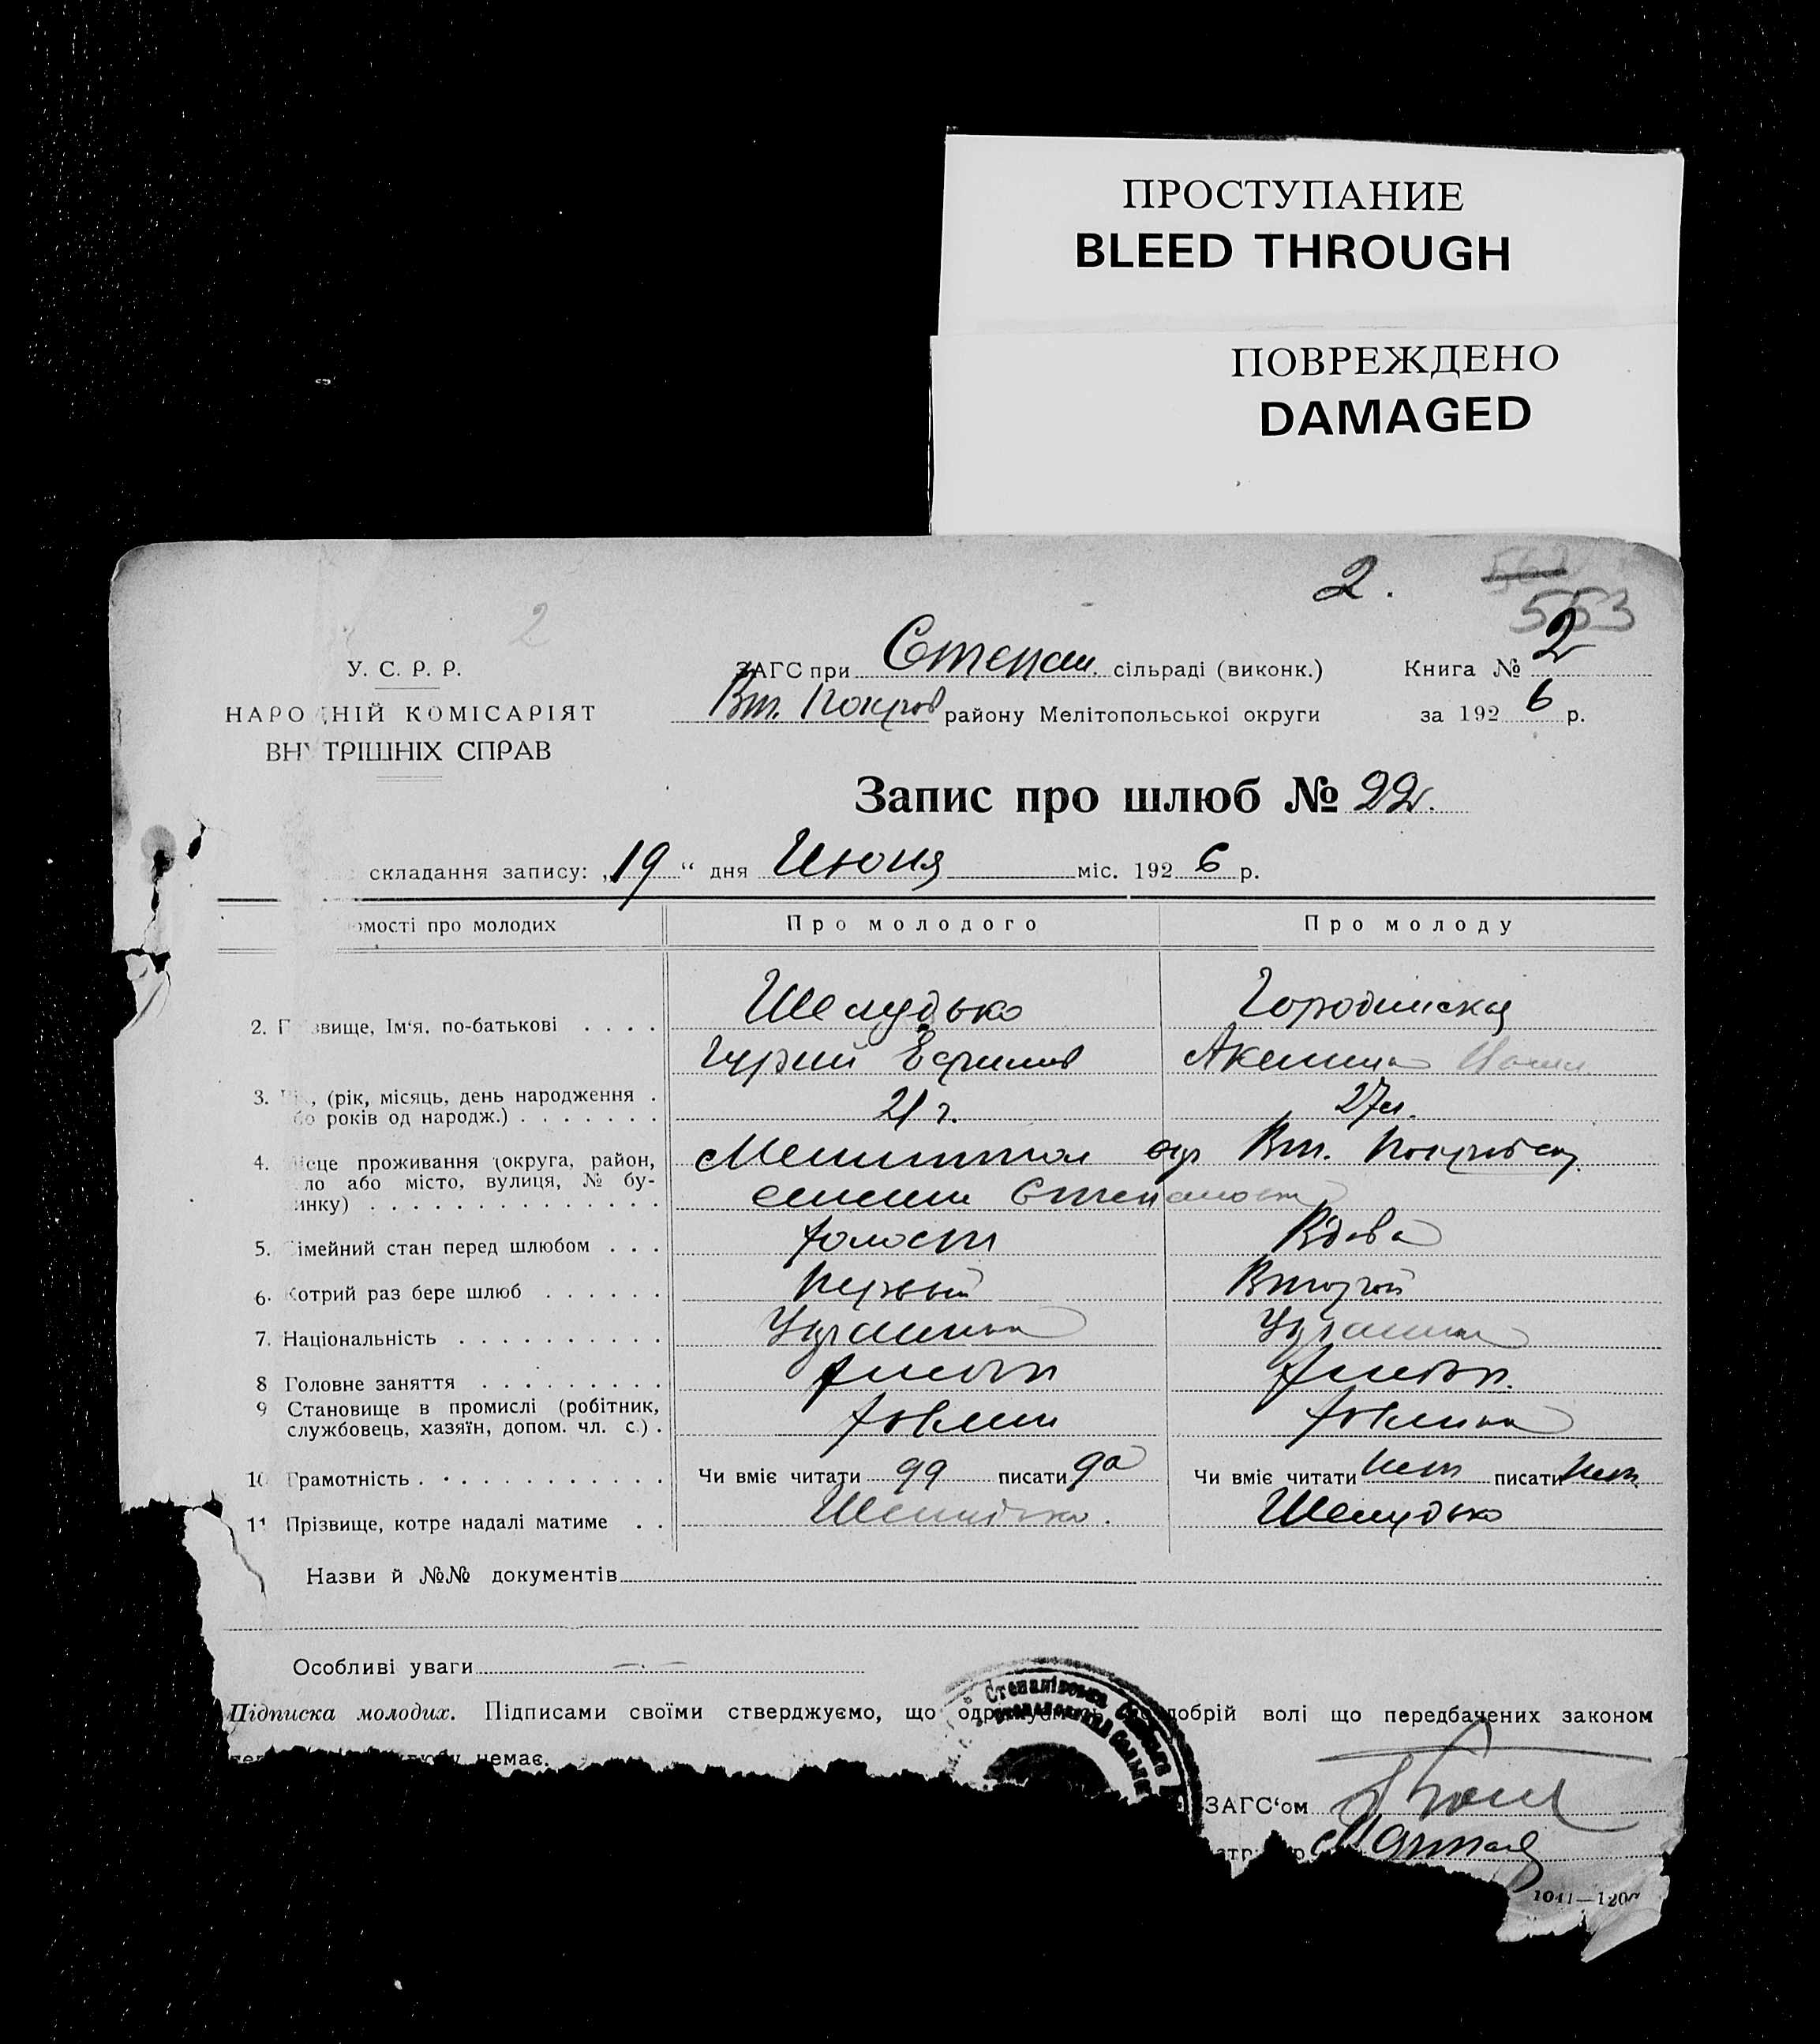 ПРОСТУПАНИЕ
BLEED THROUGH
ПОВРЕЖДЕНО
DAMAGED
2.
553
2
У. С. Р. Р.
НАРО НІЙ КОМІСАРІЯТ
ВН ТРІШНІХ СПРАВ
ЗАГС при Степан. сільраді (виконк.)
Книга № 2
Вт. Покров району Мелітопольської округи
за 1926 р.
Запис про шлюб № 22.
складання запису: „19“ дня Июня міс. 1926 р.
омості про молодих Про молодого Про молоду
Шелудько Городинская
2. П звище, Ім‘я, по-батькові . . . .
Гурий Ефимов Акелина
3. , (рік, місяць, день народження .
бо років од народж.) . . . . . . .
21 г. 27 л.
4. ісце проживання (округа, район,
ло або місто, вулиця, № бу-
инку) . . . . . . . . . . . . . .
Мелитопол окр Вт. Покровск
Степановк
5. імейний стан перед шлюбом . . . Холост Вдова
6. Котрий раз бере шлюб . . . . . . Первый Второй
7. Національність . . . . . . . . . . Украинка
8 Головне заняття . . . . . . . . . Хлебоп Хлебоп.
9 Становище в промислі (робітник,
службовець, хазяїн, допом. чл. с.) .
Хозяин Хозяйка
10 Грамотність . . . . . . . . . . . Чи вміє читати да писати да Чи вміє читати нет писати нет
11 Прізвище, котре надалі матиме . . Шелудько. Шелудько
Назви й №№ документів
Особливі уваги
Підписка молодих. Підписами своїми стверджуємо, що добрій волі що передбачених законом
немає.
Степанівська
ЗАГС‘ом
1041—120